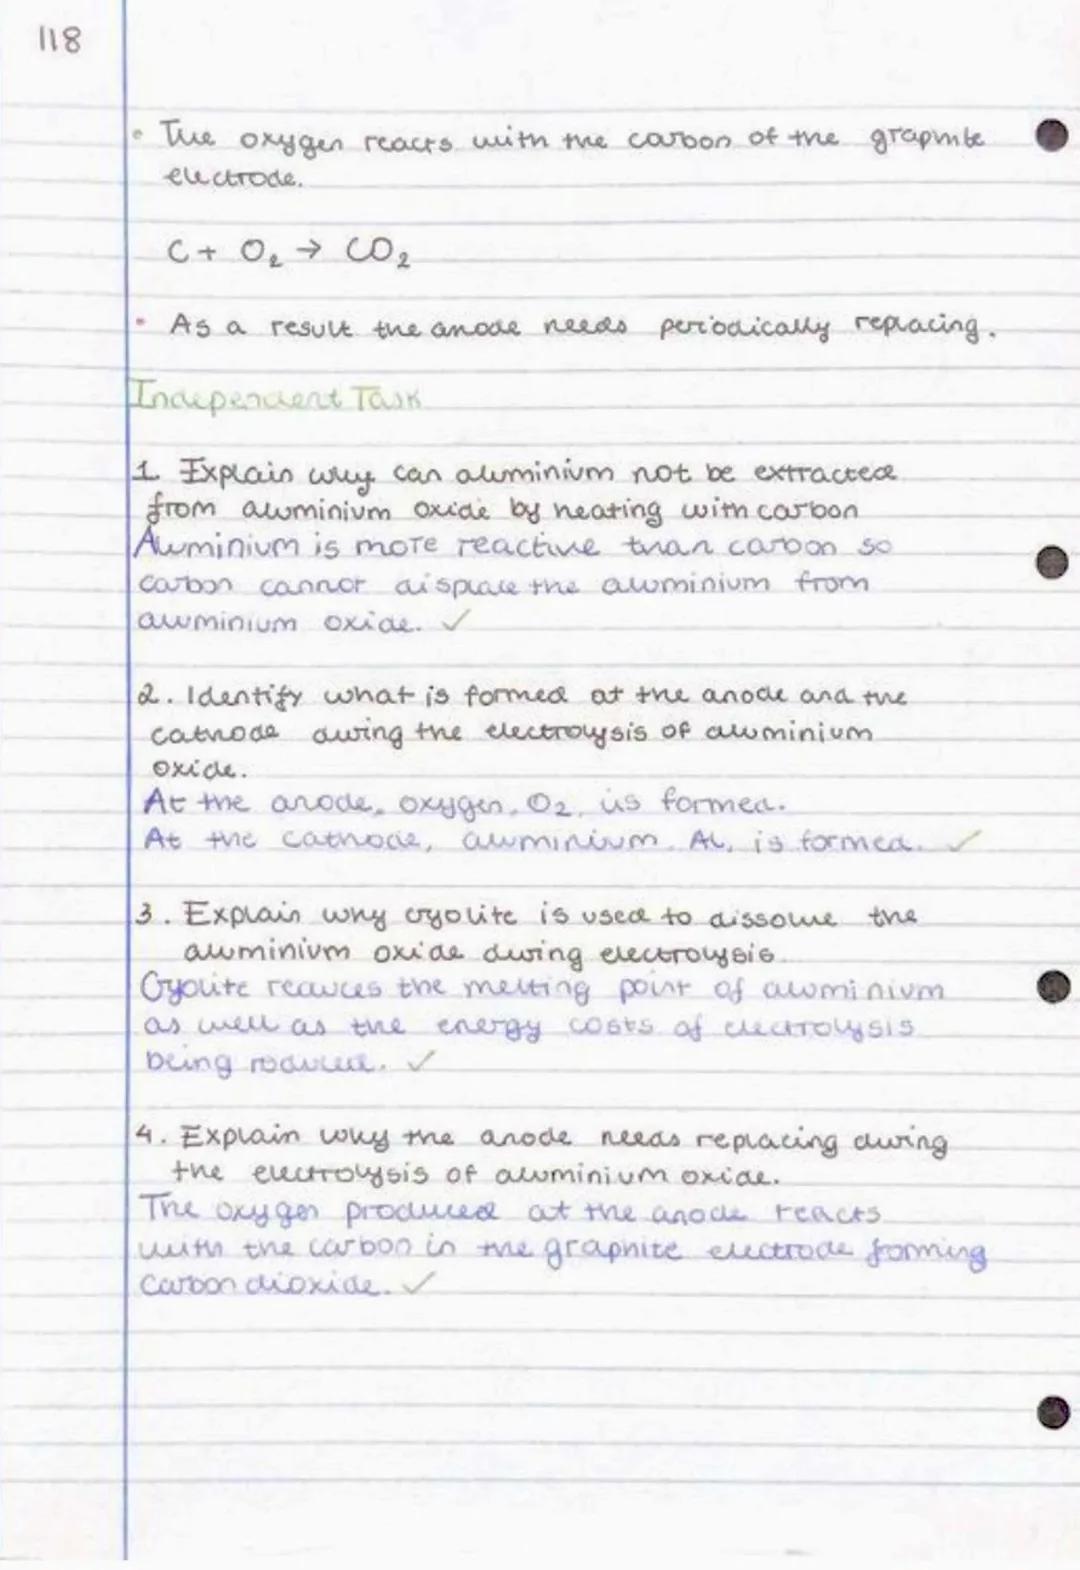 118
• The oxygen reacts with the carbon of the graphite
electrode.
C + O₂ → CO₂
• As a result the anode needs periodically replacing.
Independent Task
1 Explain why can aluminium not be extracted
from aluminium oxide by heating with carbon
Aluminium is more reactive than carbon so
carbon cannot displace the aluminium from
aluminium oxide. ✓
2. Identify what is formed at the anode and the
cathode during the electrolysis of aluminium
oxide.
At the anode, oxygen, O₂, is formed.
At the cathode, aluminium, Al, is formed. ✓
3. Explain why cryolite is used to dissolve the
aluminium oxide during electrolysis.
Cryolite reduces the melting point of aluminium
as well as the energy costs of electrolysis
being reduced. ✓
4. Explain why the anode needs replacing during
the electrolysis of aluminium oxide.
The oxygen produced at the anode reacts
with the carbon in the graphite electrode forming
carbon dioxide. ✓